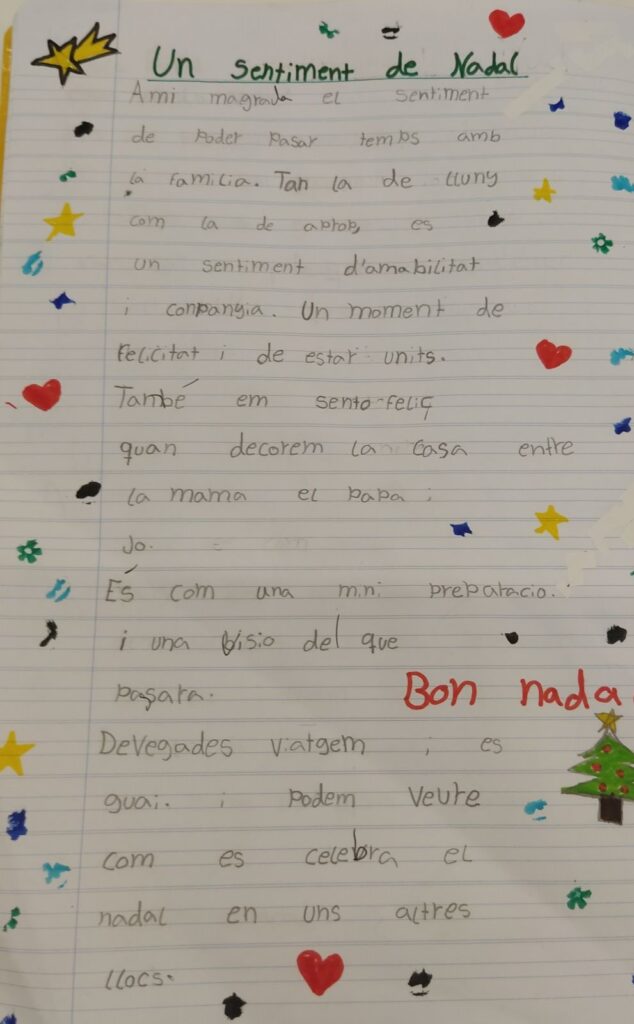 Un sentiment de Nadal
Ami magrada el sentiment
de poder pasar temps amb
la familia. Tan la de lluny
com la de aprop, es
un sentiment d'amabilitat
i conpangia. Un moment de
felicitat i de estar units.
També em sento feliç
quan decorem la casa entre
la mama el papa i
jo.
És com una mini preparacio.
i una visio del que
pasara.
Bon nada
Devegades viatgem i es
guai. i podem veure
com es celebra el
nadal en uns altres
llocs.